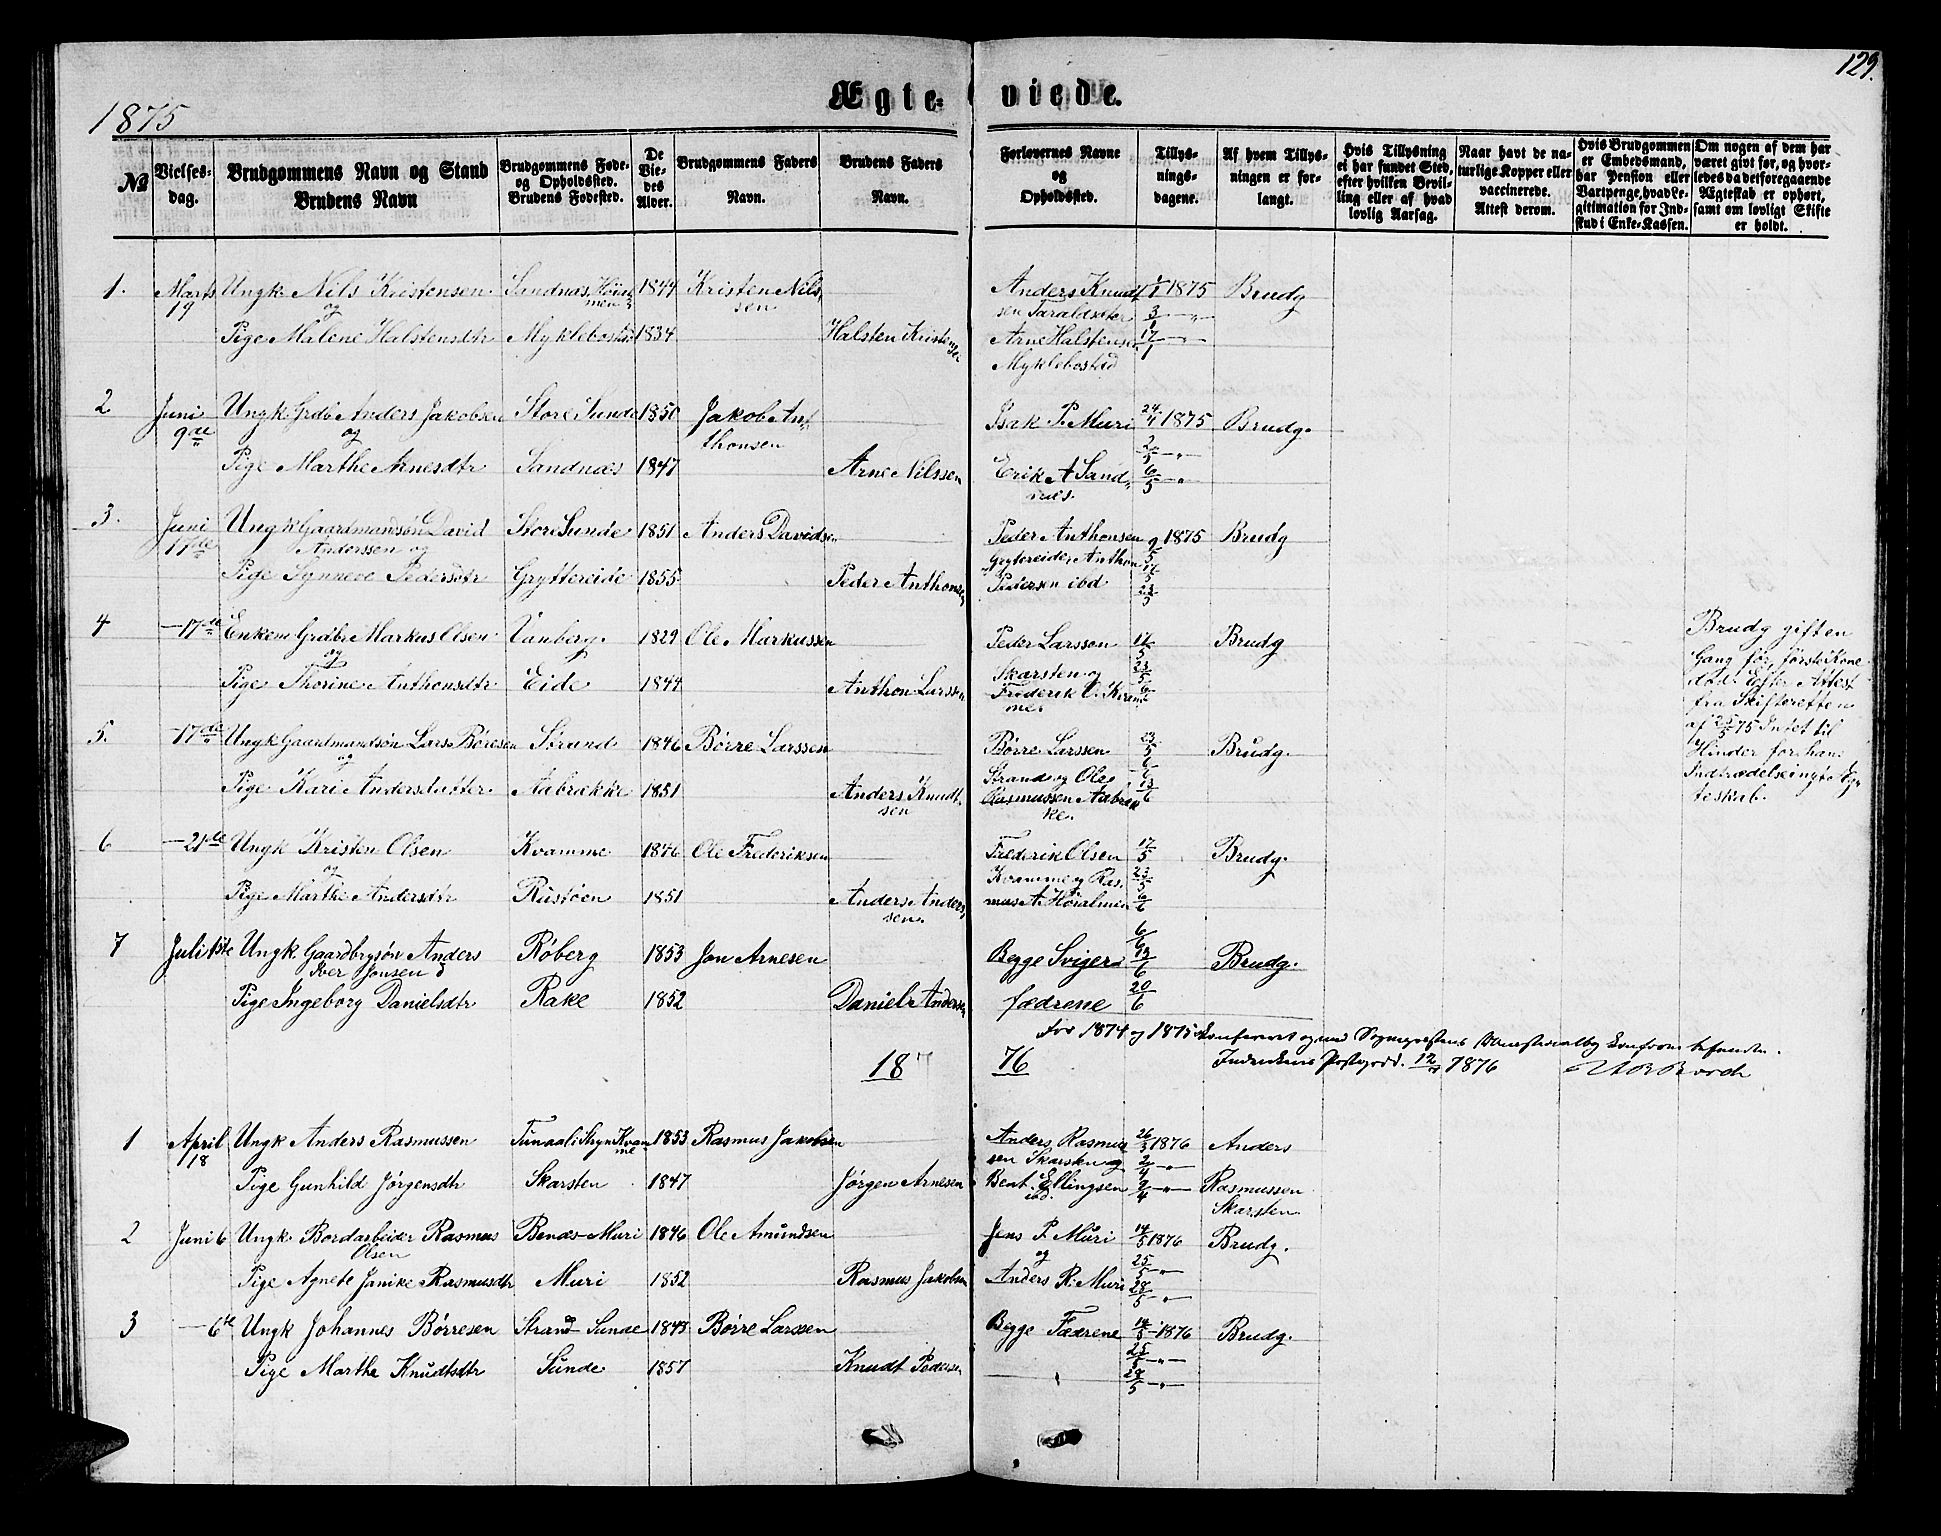 129.
1875
Ægte- viede.
№
Vielses-
dag.
Brudgommens Navn og Stand
Brudens Navn
Brudgommens Føde-
og Opholdssted.
Brudens Fødested.
De
Vie-
des
Alder.
Brudgommens Faders
Navn.
Brudens Faders
Navn.
Forlovernes Navne
og
Opholdssted.
Tillys-
nings-
dagene.
Af hvem Tillys-
ningen er for-
langt.
Hvis Tillysning
ei har fundet Sted,
efter hvilken Bevil-
ling eller af hvad
lovlig Aarsag.
Naar havt de na-
turlige Kopper eller
vaccinerede.
Attest derom.
Hvis Brudgommen
er Embedsmand,
har Pension eller
Vartpenge, hvad Le-
gitimation for Ind-
skud i Enke-Kassen.
Om nogen af dem har
været givt før, og hvor-
ledes da det foregaaende
Ægteskab er ophørt,
samt om lovligt Skifte
er holdt.
1. Marts Ungk. Nils Kristensen Sandnæs, 1844 Kristen Nils Anders Knudt 1/1 1875 Brudg
19 og sen sen Taraldsæter 3/1 — " —
Pige Malene Halstensdtr Myklebostad 1834 Halsten Kristensen Arne Halstensen 17/1 — " —
Myklebostad
2 Juni Ungk. Grdb Anders Jakobsen Store Sunde 1850 Jakob An- Isak P. Muri 24/4 1875 Brudg.
9de og thonsen 2/5 — " —
Pige Marthe Arnesdtr Sandnæs 1847 Arne Nilssen Erik A Sand- 6/5 — " —
næs.
3. Juni Ungk Gaardmandsøn David Store Sunde 1851 Anders Davidsen Peder Anthonsen 9/5 1875 Brudg
17de Anderssen og Gryttereide, Anthon 17/5
Pige Synneve Pedersdtr Gryttereide 1855 Peder Anthonsen Pedersen ibd 23/5
4 —17de Enkem Grdbr Markus Olsen Vanberg. 1829 Ole Markussen Peder Larssen 17/5 Brudg
og Skarsten og 23/5
Pige Thorine Anthonsdtr Eide 1844 Anthon Larssen Frederik O. Kvam- 6/6
me.
Brudg gift en
Gang før, første Kone
død. Efter Attest
fra Skifteretten
af 25/5 75 Intet til
Hinder for hans
Indtrædelse i nyt Æg-
teskab.
5. —17de Ungk Gaardmandsøn Lars Børesen Strand 1846 Børre Larssen Børre Larssen 23/5 Brudg.
og Strand og Ole 6/6
Pige Kari Andersdatter Aabrække 1851 Anders Knudt- Rasmussen Aabræk 13/6
sen ke.
6 —21de Ungk Kristen Olsen Kvamme 1846 Ole Frederiksen Frederik Olsen 17/5 Brudg.
og Kvamme og Ras- 23/5
Pige Marthe Andersdtr Rustøen 1851 Anders Anders- mus A. Høialmen 6/6
sen.
7 Juli 1ste Ungk Gaardbrgsøn Anders Røberg 1853 Jon Arnesen Begge Sviger- 6/6 Brudg.
Iver Jonsen & 13/6
Pige Ingeborg Danielsdtr Rake 1852 Daniel Andersen fædrene 20/6
For 1874 og 1875 konfereret og med Sognepræstens Ministerialbog konform befunden.
Indvikens Præstegjeld. 1876
18 76
1 April Ungk Anders Rasmussen Tunaal i Stryn Kvam 1853 Rasmus Jakobsen Anders Rasmus 26/3 1876 Anders
18 me sen Skarsten og 2/4 — " —
Pige Gunhild Jørgensdtr Skarsten 1847 Jørgen Arnesen Bent Ellingsen 9/4 — " — Rasmussen
ibd. Skarsten
2 Juni 6 Ungk. Bordarbeider Rasmus Benæs-Muri 1846 Ole Amundsen Jens P. Muri 14/5 1876 Brudg.
Olsen og 25/5 — " —
Pige Agnete Janike Rasmusdtr Muri 1852 Rasmus Jakobsen Anders R. Muri 28/5 — " —
3 — 6te Ungk Johannes Børresen Strand Sunde 1843 Børre Larssen Begge Fædrene 14/5 — 1876 Brudg.
25/5 — " —
Pige Marthe Knudtsdtr Sunde 1857 Knudt Pedersen 28/5 — " —